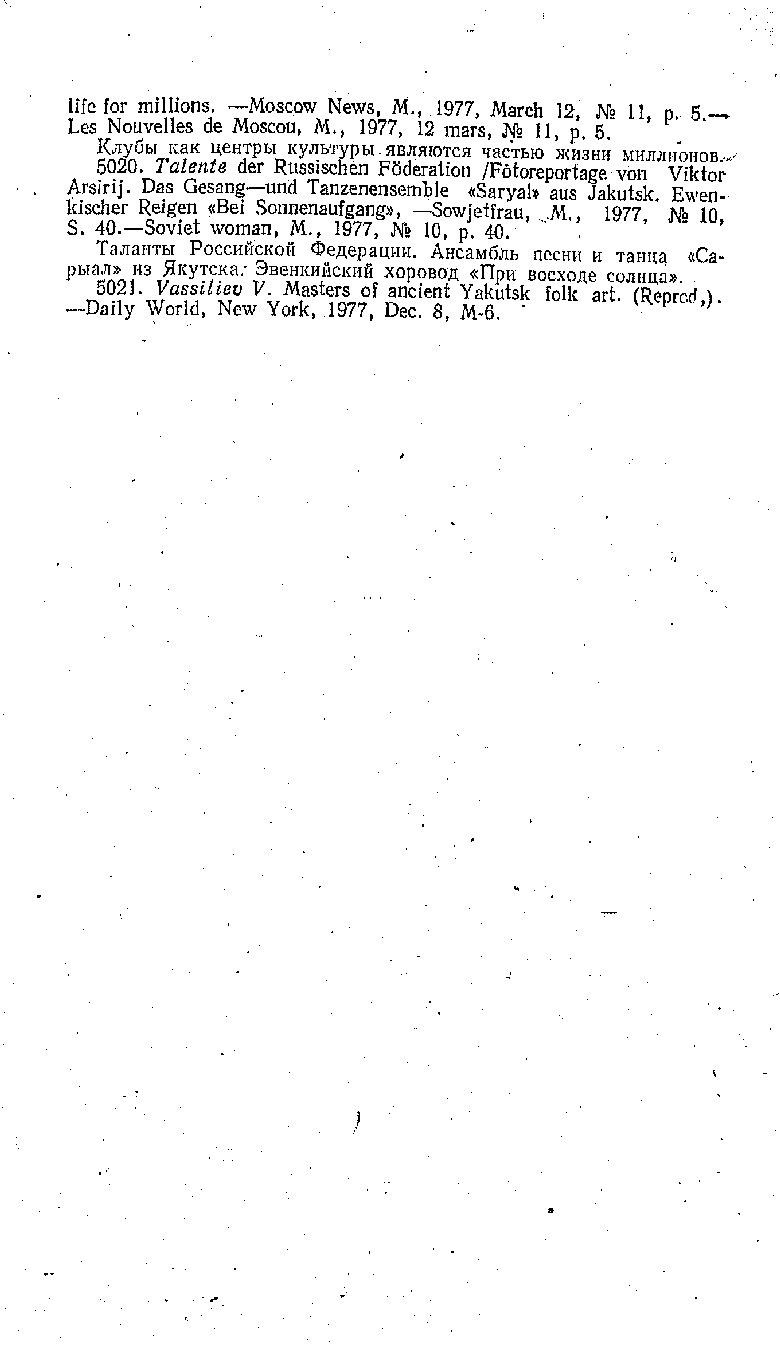 life for millions. —Moscow News, M., 1977, March 12, № 11, p. 5.—
Les Nouvelles de Moscou, M., 1977, 12 mars, № 11, p. 5.
Клубы как центры культуры являются частью жизни миллионов.
5020. Talente der Russischen Föderation /Fotoreportage von Viktor
Arsirij. Das Gesang—und Tanzenensemble «Saryal» aus Jakutsk. Ewen-
kischer Reigen «Bei Sonnenaufgang», —Sowjetfrau, M., 1977, № 10,
S. 40.—Soviet woman, M., 1977, № 10, p. 40.
Таланты Российской Федерации. Ансамбль песни и танца «Са-
рыал» из Якутска. Эвенкийский хоровод «При восходе солнца».
5021. Vassiliev V. Masters of ancient Yakutsk folk art. (Reprod.).
—Daily World, New York, 1977, Dec. 8, M-6.